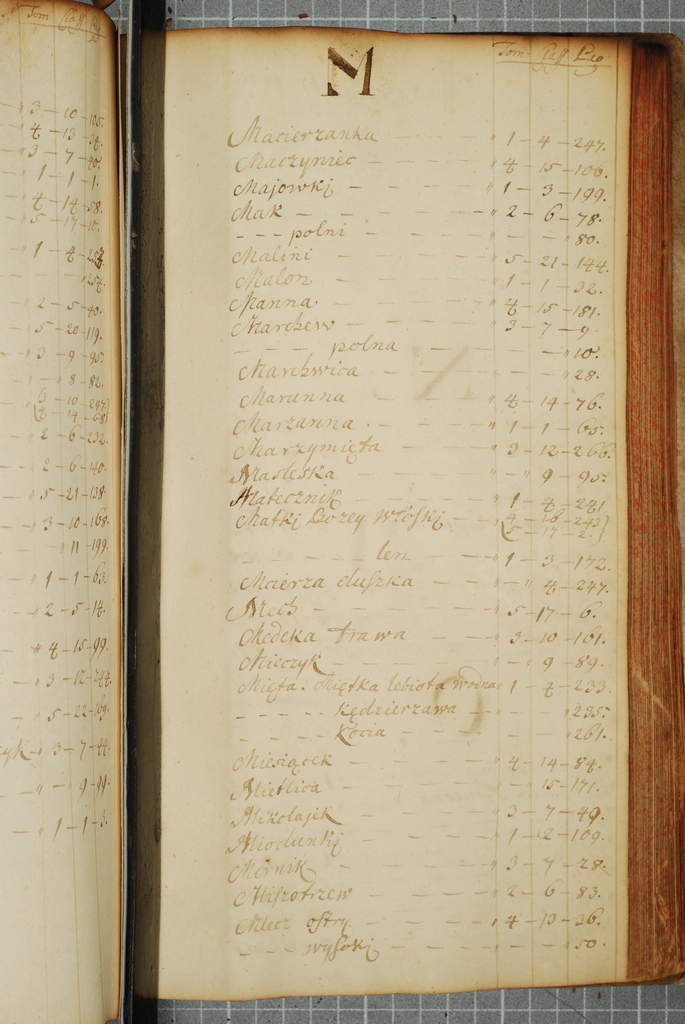 Tom Class Pag
" 3 - 10 - 105.
4 - 13 - 34.
3 - 7 - 40.
1 - 1 - 1.
4 - 14 - 58.
5 - 17 - 10.
1 - 4 - 257.
" 254.
2 - 5 - 40.
5 - 20 - 119.
3 - 9 - 95.
1 - 8 - 82.
3 - 10 - 247
4 - 14 - 68
2 - 6 - 232.
2 - 6 - 140.
5 - 21 - 138.
3 - 10 - 168.
" 11 - 199.
1 - 1 - 63.
2 - 5 - 14.
4 - 15 - 99.
3 - 12 - 244.
5 - 22 - 169.
3 - 7 - 44.
" 9 - 91.
1 - 1 - 3.
M
Tom Class Pag
Macierzanka " 1 - 4 - 247.
Maczyniec " 4 - 15 - 106.
Majowki " 1 - 3 - 199.
Mak " 2 - 6 - 78.
- - - polni " 80.
Malini " 5 - 21 - 144.
Malon " 1 - 1 - 32.
Manna " 4 - 15 - 181.
Marchew " 3 - 7 - 9.
- - - polna " 10.
Marchwica " 28.
Marunna " 4 - 14 - 76.
Marzanna " 1 - 1 - 65.
Marzymięta " 3 - 12 - 266.
Masleska " " 9 - 95.
Matecznik " 1 - 4 - 241
Matki Bozey Włoski { 4 - 16 - 243 }
{ 5 - 17 - 2. }
- - - len " 1 - 3 - 172.
Macierza duszka " - " 4 - 247.
Mech " 5 - 17 - 6.
Medeka trawa " 3 - 10 - 161.
Mieczyk " - " 9 - 89.
Mięta. Miętka lebiota wodna " 1 - 4 - 233.
- - - kędzierzawa " 235.
- - - kocia " 261.
Miesiącek " 4 - 14 - 84.
Mietlica " - " 15 - 171.
Mikołajek " 3 - 7 - 49.
Miodunki " 1 - 2 - 109.
Mirnik " 3 - 7 - 28.
Miszotrzew " 2 - 6 - 83.
Mlecz ostry " 4 - 13 - 36.
- - - wysoki " 50.